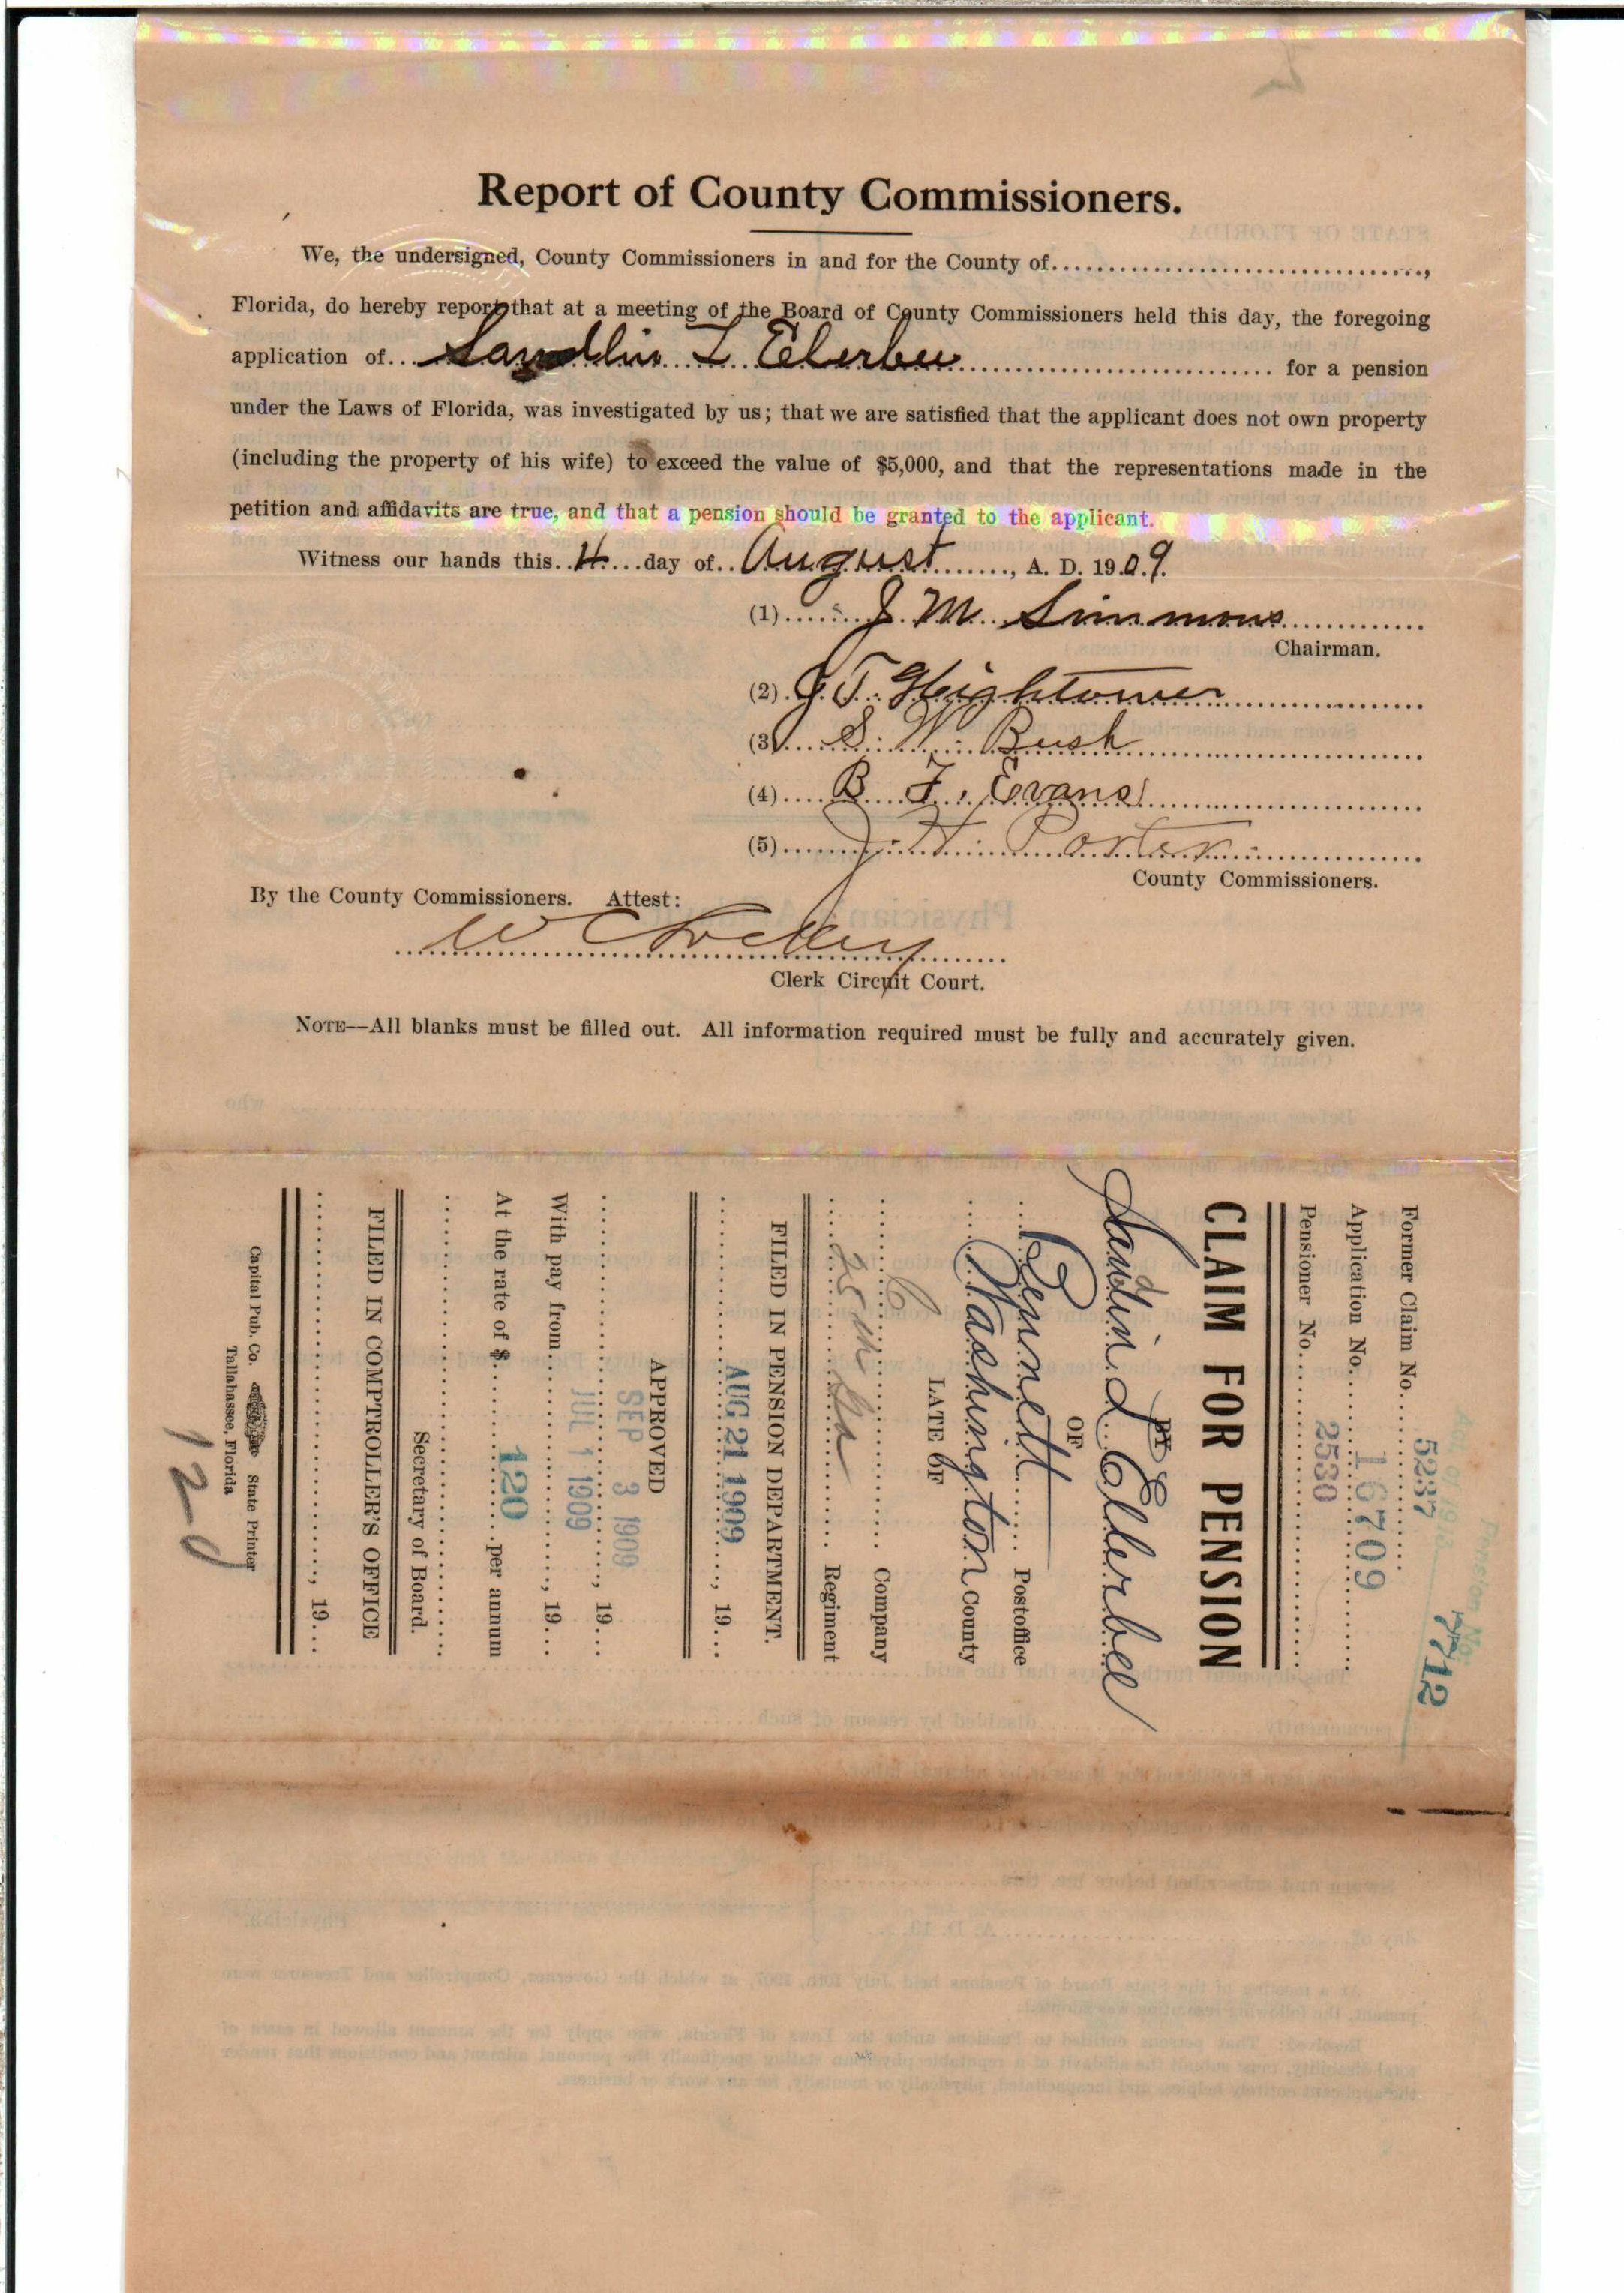 Report of County Commissioners.
We, the undersigned, County Commissioners in and for the County of..............................,
Florida, do hereby report that at a meeting of the Board of County Commissioners held this day, the foregoing
application of... Sandlin L Elerbee ............ for a pension
under the Laws of Florida, was investigated by us; that we are satisfied that the applicant does not own property
(including the property of his wife) to exceed the value of $5,000, and that the representations made in the
petition and affidavits are true, and that a pension should be granted to the applicant.
Witness our hands this..4....day of..August........, A. D. 1909.
(1)...... J. M. Simmons
Chairman.
(2). J. T. Hightower
(3)... S. W. Bush
(4).... B. F. Evans
(5)...... J. H. Porter
County Commissioners.
By the County Commissioners. Attest:
Clerk Circuit Court.
NOTE—All blanks must be filled out. All information required must be fully and accurately given.
7712
Former Claim No. 5237
Application No. 16709
Pensioner No. 2530
CLAIM FOR PENSION
BY
Sandlin L Elerbee
OF
Bennett Postoffice
Washington County
LATE OF
C Company
25th Ga Regiment
FILED IN PENSION DEPARTMENT.
AUG 21 1909, 19...
APPROVED
SEP 3 1909, 19...
With pay from JUL 1 1909, 19...
At the rate of $ 120 per annum
Secretary of Board.
FILED IN COMPTROLLER'S OFFICE
, 19...
Capital Pub. Co. State Printer
Tallahassee, Florida
120